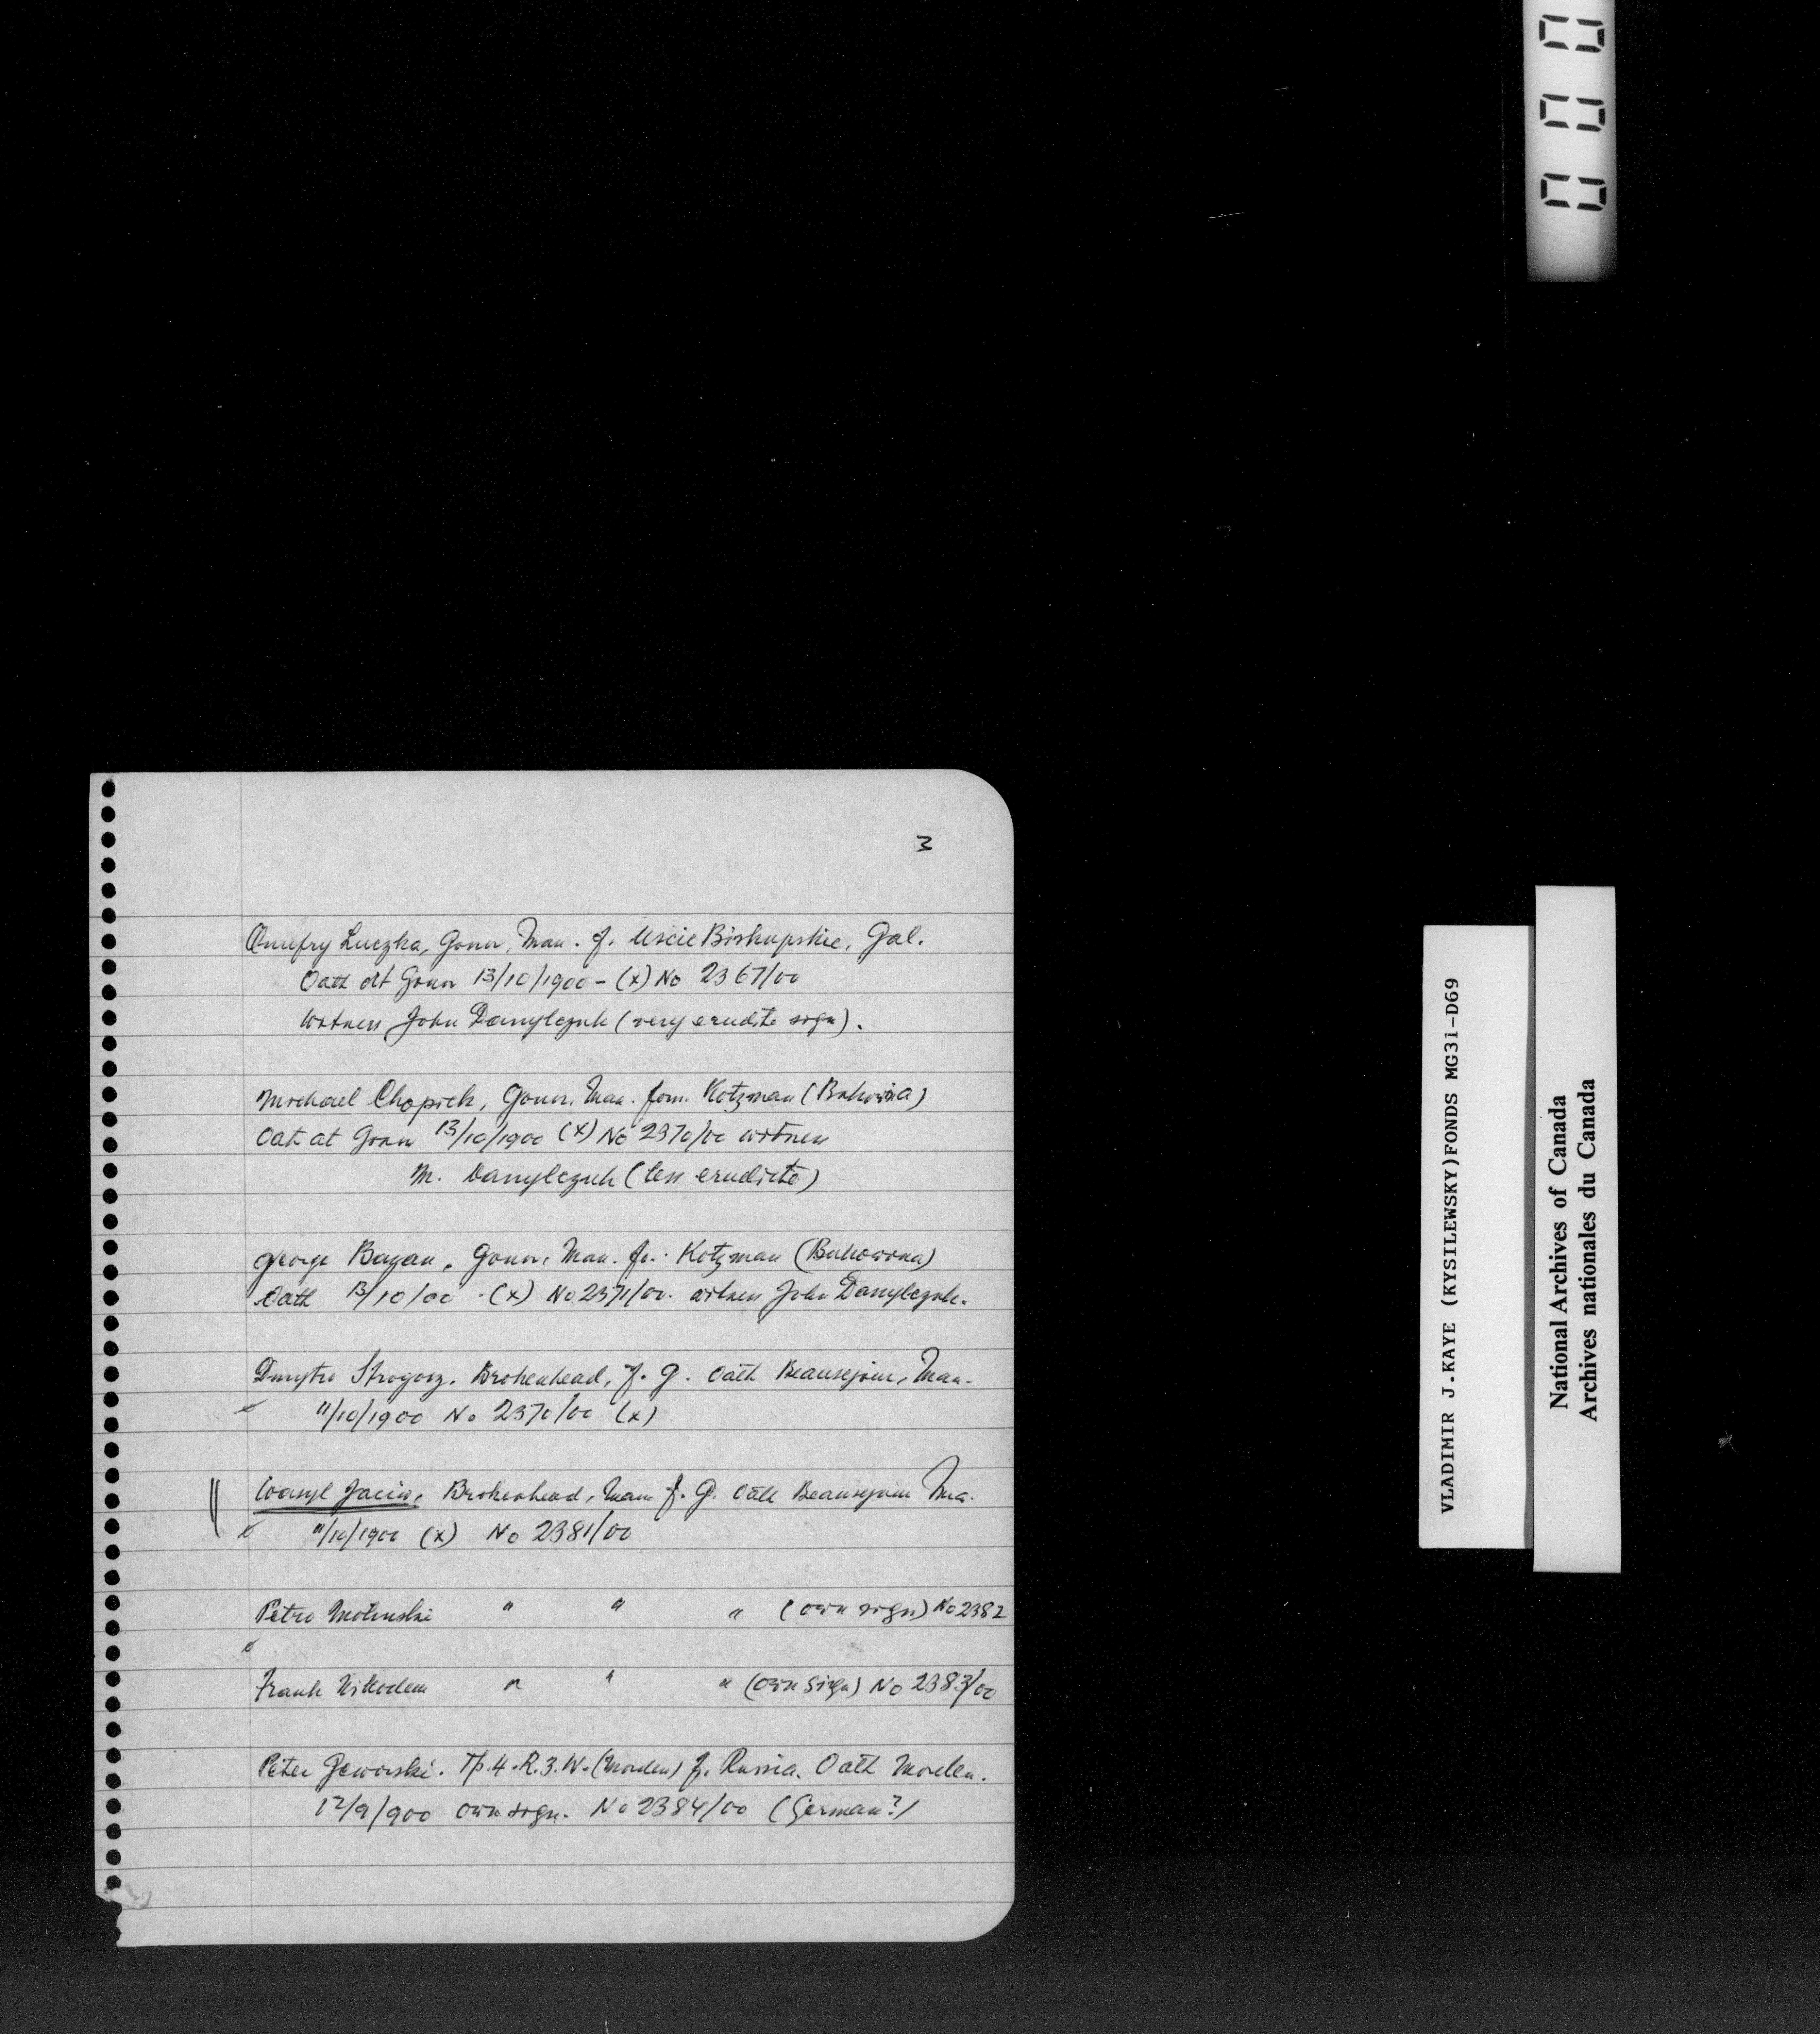 3
Onufry Luczka, Gonor, Man. f. Uscie Biskupskie, Gal.
Oath At Gonor 13/10/1900 - (x) No 2367/00
Witness John Danylczuk (very erudite sign).
Michael Chopick, Gonor, Man. from. Kotzman (Bukowina)
Oat at Gonor 13/10/1900 (x) No 2370/00 witness
M. Danylczuk (less erudite)
George Bazan, Gonor, Man. fr. Kotzman (Bukowina)
Oath 13/10/00 - (x) No 2371/00. witness John Danylczuk.
Dmytro Strogosz. Brokenhead, f. G. Oath Beausejour, Man.
11/10/1900 No 2370/00 (x)
Wasyl Jaciw, Brokenhead, Man f. G. Oath Beausejour Ma.
11/10/1900 (x) No 2381/00
Petro " " " (own sign) No 2382
Frank Nikodem " " " (own sign) No 2383/00
Peter Jeworski. Tp. 4. R. 3. W. (Morden) f. Russia. Oath Morden.
12/9/900 own sign. No 2384/00 (German?)
000
VLADIMIR J.KAYE (KYSILEWSKY)FONDS MG31-D69
National Archives of Canada
Archives nationales du Canada